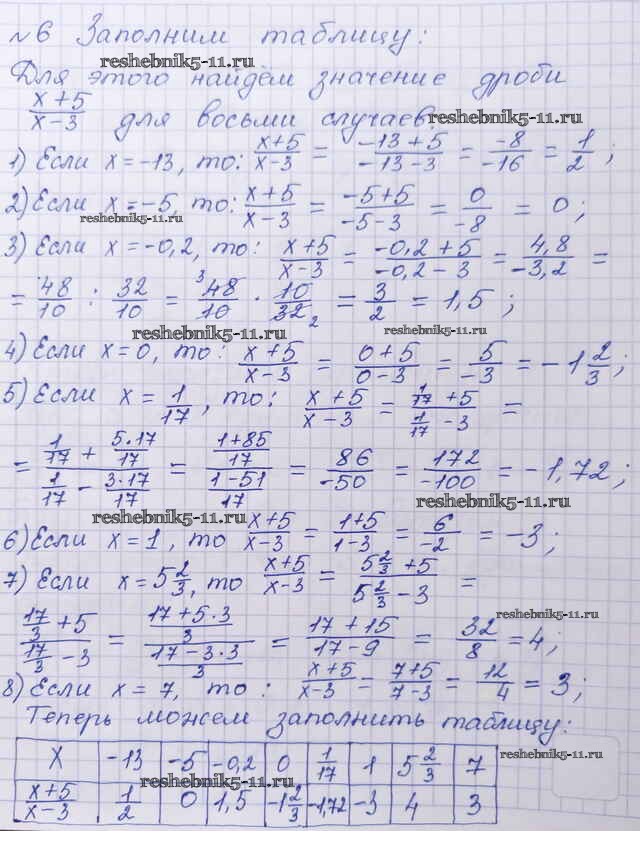 №6 Заполним таблицу:
reshebnik5-11.ru
Для этого найдём значение дроби
(x+5)/(x-3) для восьми случаев:
reshebnik5-11.ru
1) Если x=-13, то: (x+5)/(x-3) = (-13+5)/(-13-3) = -8/-16 = 1/2;
2) Если x=-5, то: (x+5)/(x-3) = (-5+5)/(-5-3) = 0/-8 = 0;
reshebnik5-11.ru
3) Если x=-0,2, то: (x+5)/(x-3) = (-0,2+5)/(-0,2-3) = 4,8/-3,2 =
= 48/10 : 32/10 = 48/10 · 10/32 = 3/2 = 1,5;
3 2
reshebnik5-11.ru reshebnik5-11.ru
4) Если x=0, то: (x+5)/(x-3) = (0+5)/(0-3) = 5/-3 = -1 2/3;
5) Если x = 1/17, то: (x+5)/(x-3) = (1/17+5)/(1/17-3) =
= (1/17 + 5·17/17)/(1/17 - 3·17/17) = ((1+85)/17)/((1-51)/17) = 86/-50 = 172/-100 = -1,72;
reshebnik5-11.ru
reshebnik5-11.ru
6) Если x=1, то (x+5)/(x-3) = (1+5)/(1-3) = 6/-2 = -3;
7) Если x=5 2/3, то (x+5)/(x-3) = (5 2/3+5)/(5 2/3-3) =
reshebnik5-11.ru
(17/3+5)/(17/3-3) = ((17+5·3)/3)/((17-3·3)/3) = (17+15)/(17-9) = 32/8 = 4;
8) Если x=7, то: (x+5)/(x-3) = (7+5)/(7-3) = 12/4 = 3;
Теперь можем заполнить таблицу:
X -13 -5 -0,2 0 1/17 1 5 2/3 7
reshebnik5-11.ru
reshebnik5-11.ru
(x+5)/(x-3) 1/2 0 1,5 -1 2/3 -1,72 -3 4 3